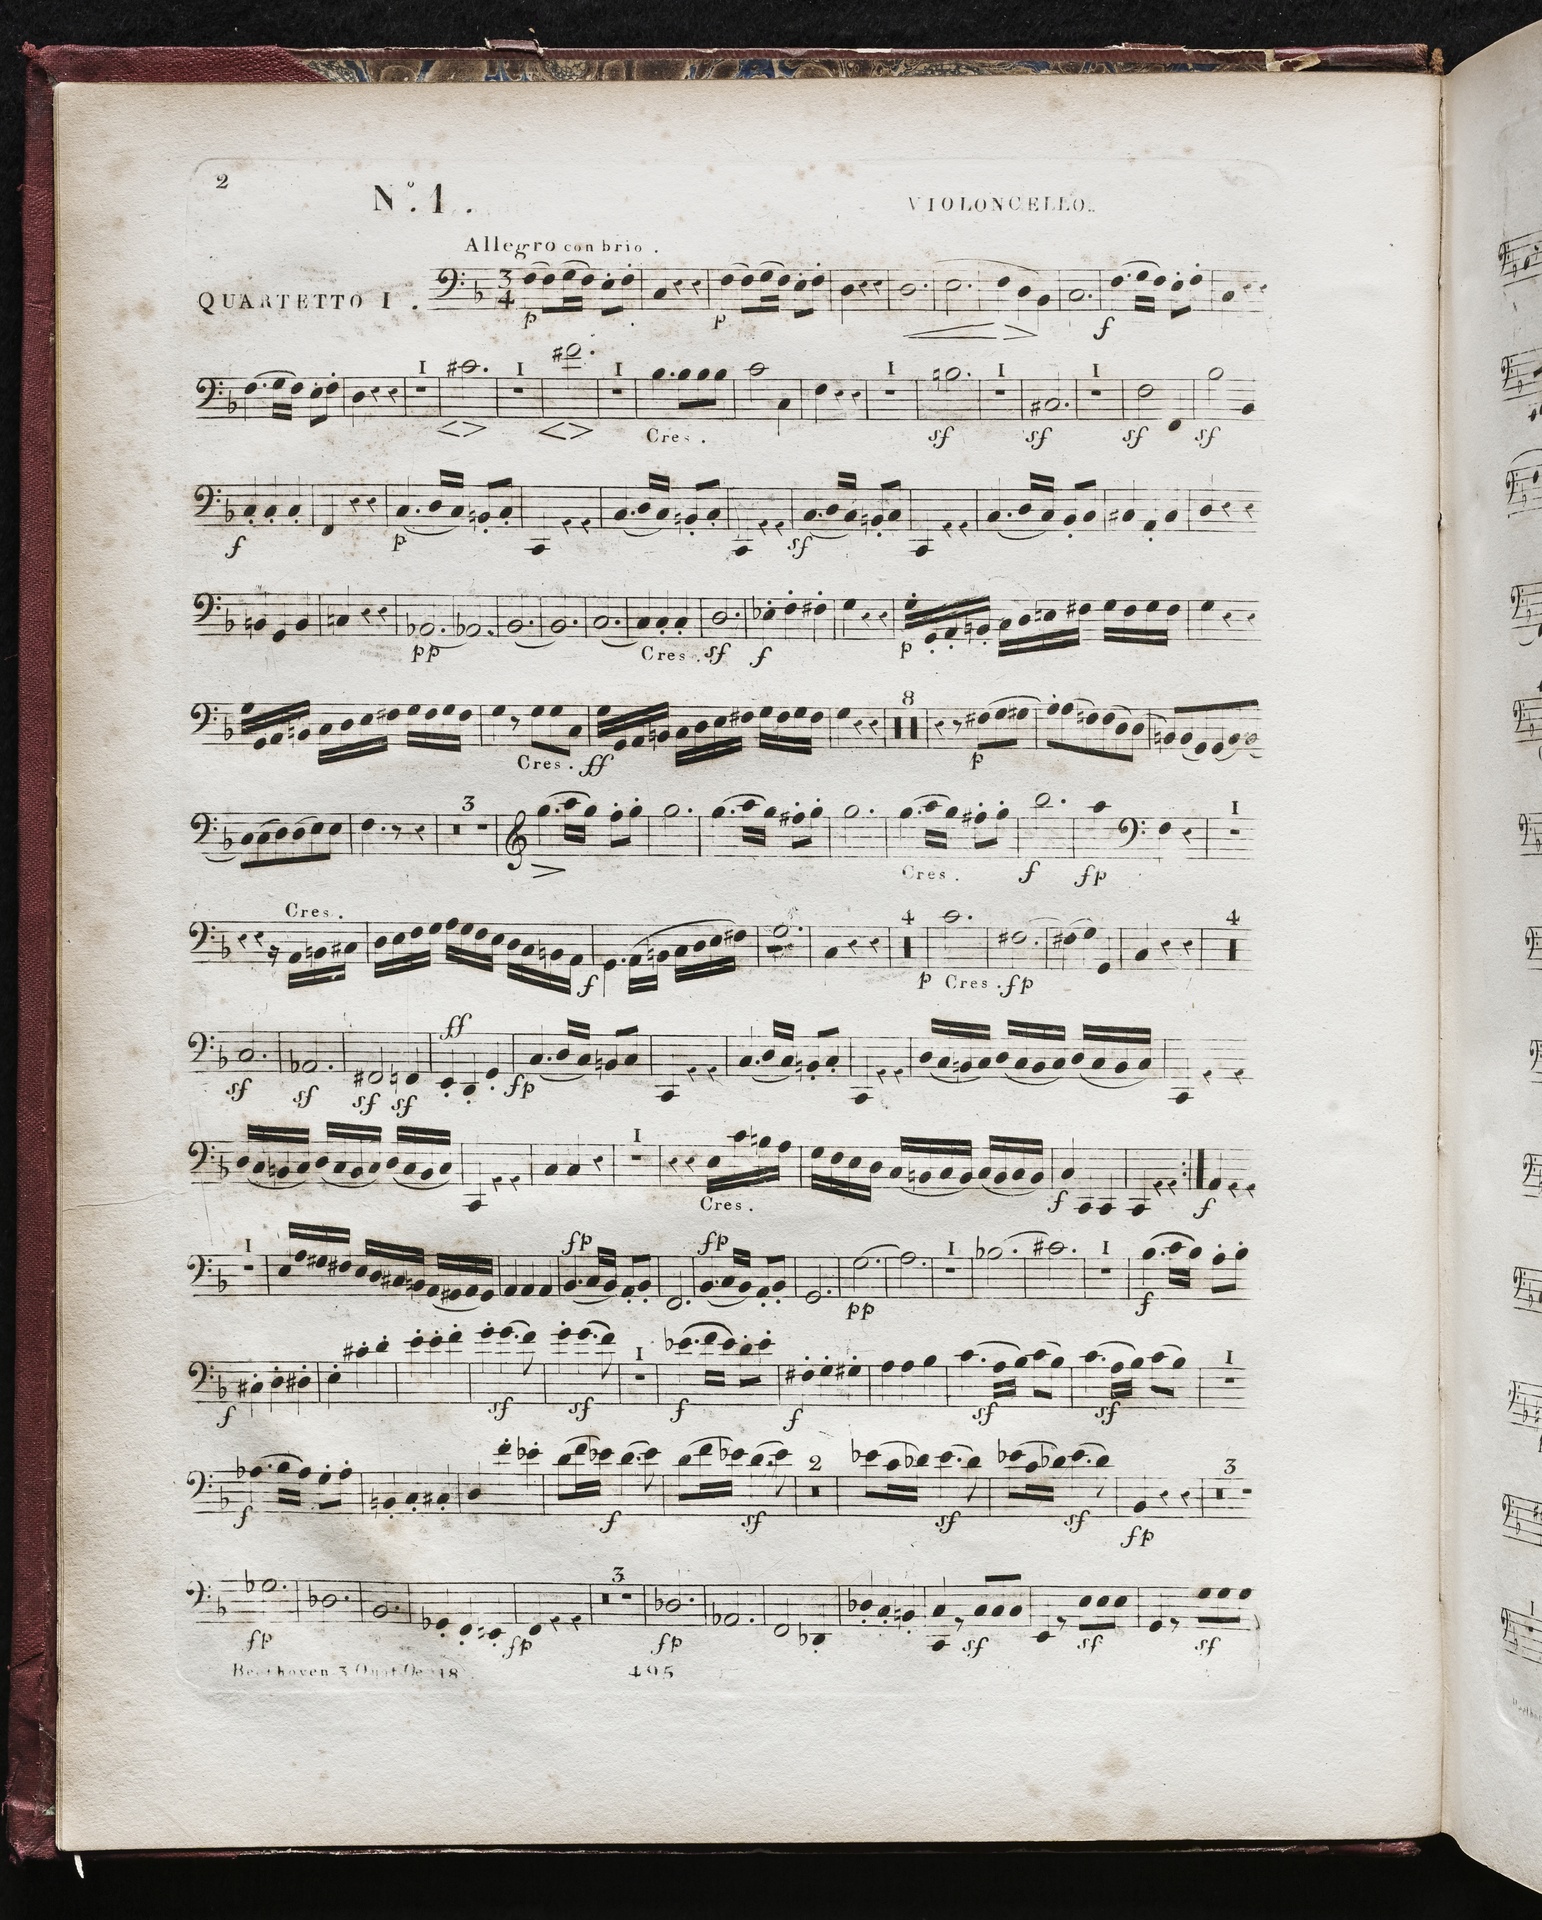 2
N.º 1.
VIOLONCELLO.
Allegro con brio.
QUARTETTO I.
3
4
p p f
I I I I I I
Cres. sf sf sf sf
f p sf
pp Cres. sf f p
8
Cres. ff p
3 I
Cres. f fp
Cres. 4 4
f p Cres. fp
ff
sf sf sf sf fp
I
Cres. f f
I fp fp I I
pp f
I I
f sf sf f f sf sf
2 3
f f sf sf sf fp
3
fp fp fp sf sf sf
Beethoven 3 Quat. Oe 18
495